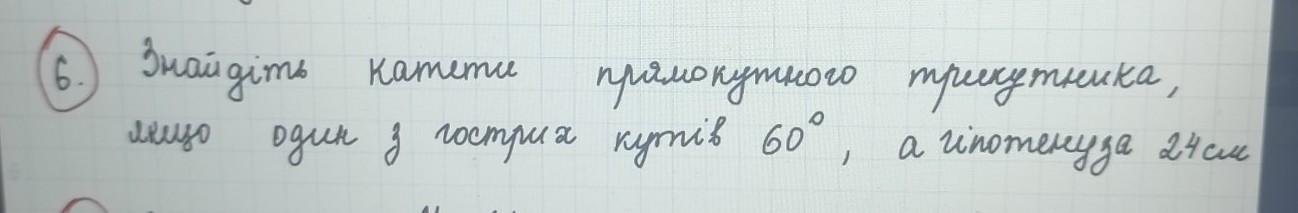 6. Знайдіть катети прямокутного трикутника,
якщо один з гострих кутів 60°, а гіпотенуза 24 см